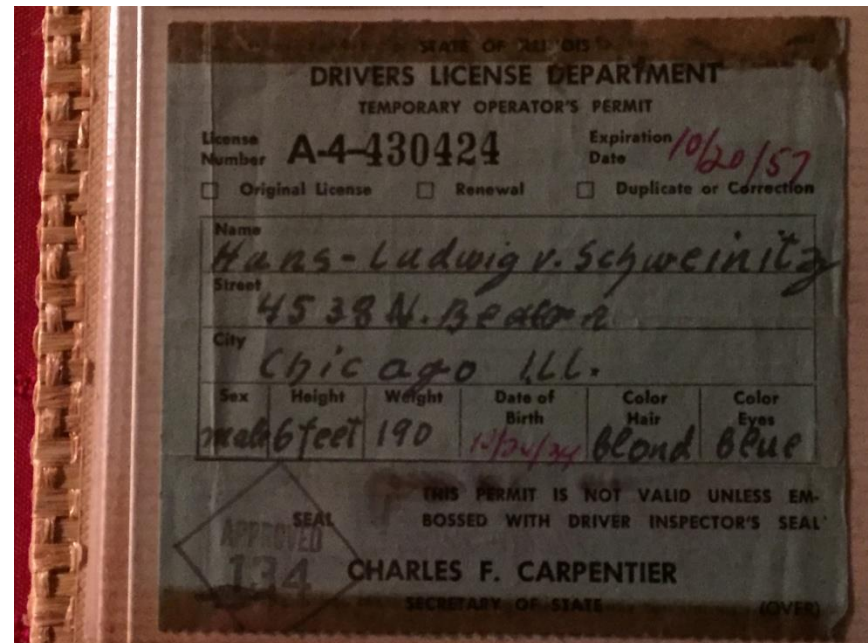 STATE OF ILLINOIS
DRIVERS LICENSE DEPARTMENT
TEMPORARY OPERATOR'S PERMIT
License Number A-4-430424 Expiration Date 10/20/57
Original License Renewal Duplicate or Correction
Name
Hans-Ludwig v. Schweinitz
Street
4538 N. Beacon
City
Chicago Ill.
Sex Height Weight Date of Birth Color Hair Color Eyes
male 6 feet 190 blond blue
THIS PERMIT IS NOT VALID UNLESS EM-
SEAL BOSSED WITH DRIVER INSPECTOR'S SEAL
APPROVED
134 CHARLES F. CARPENTIER
SECRETARY OF STATE (OVER)